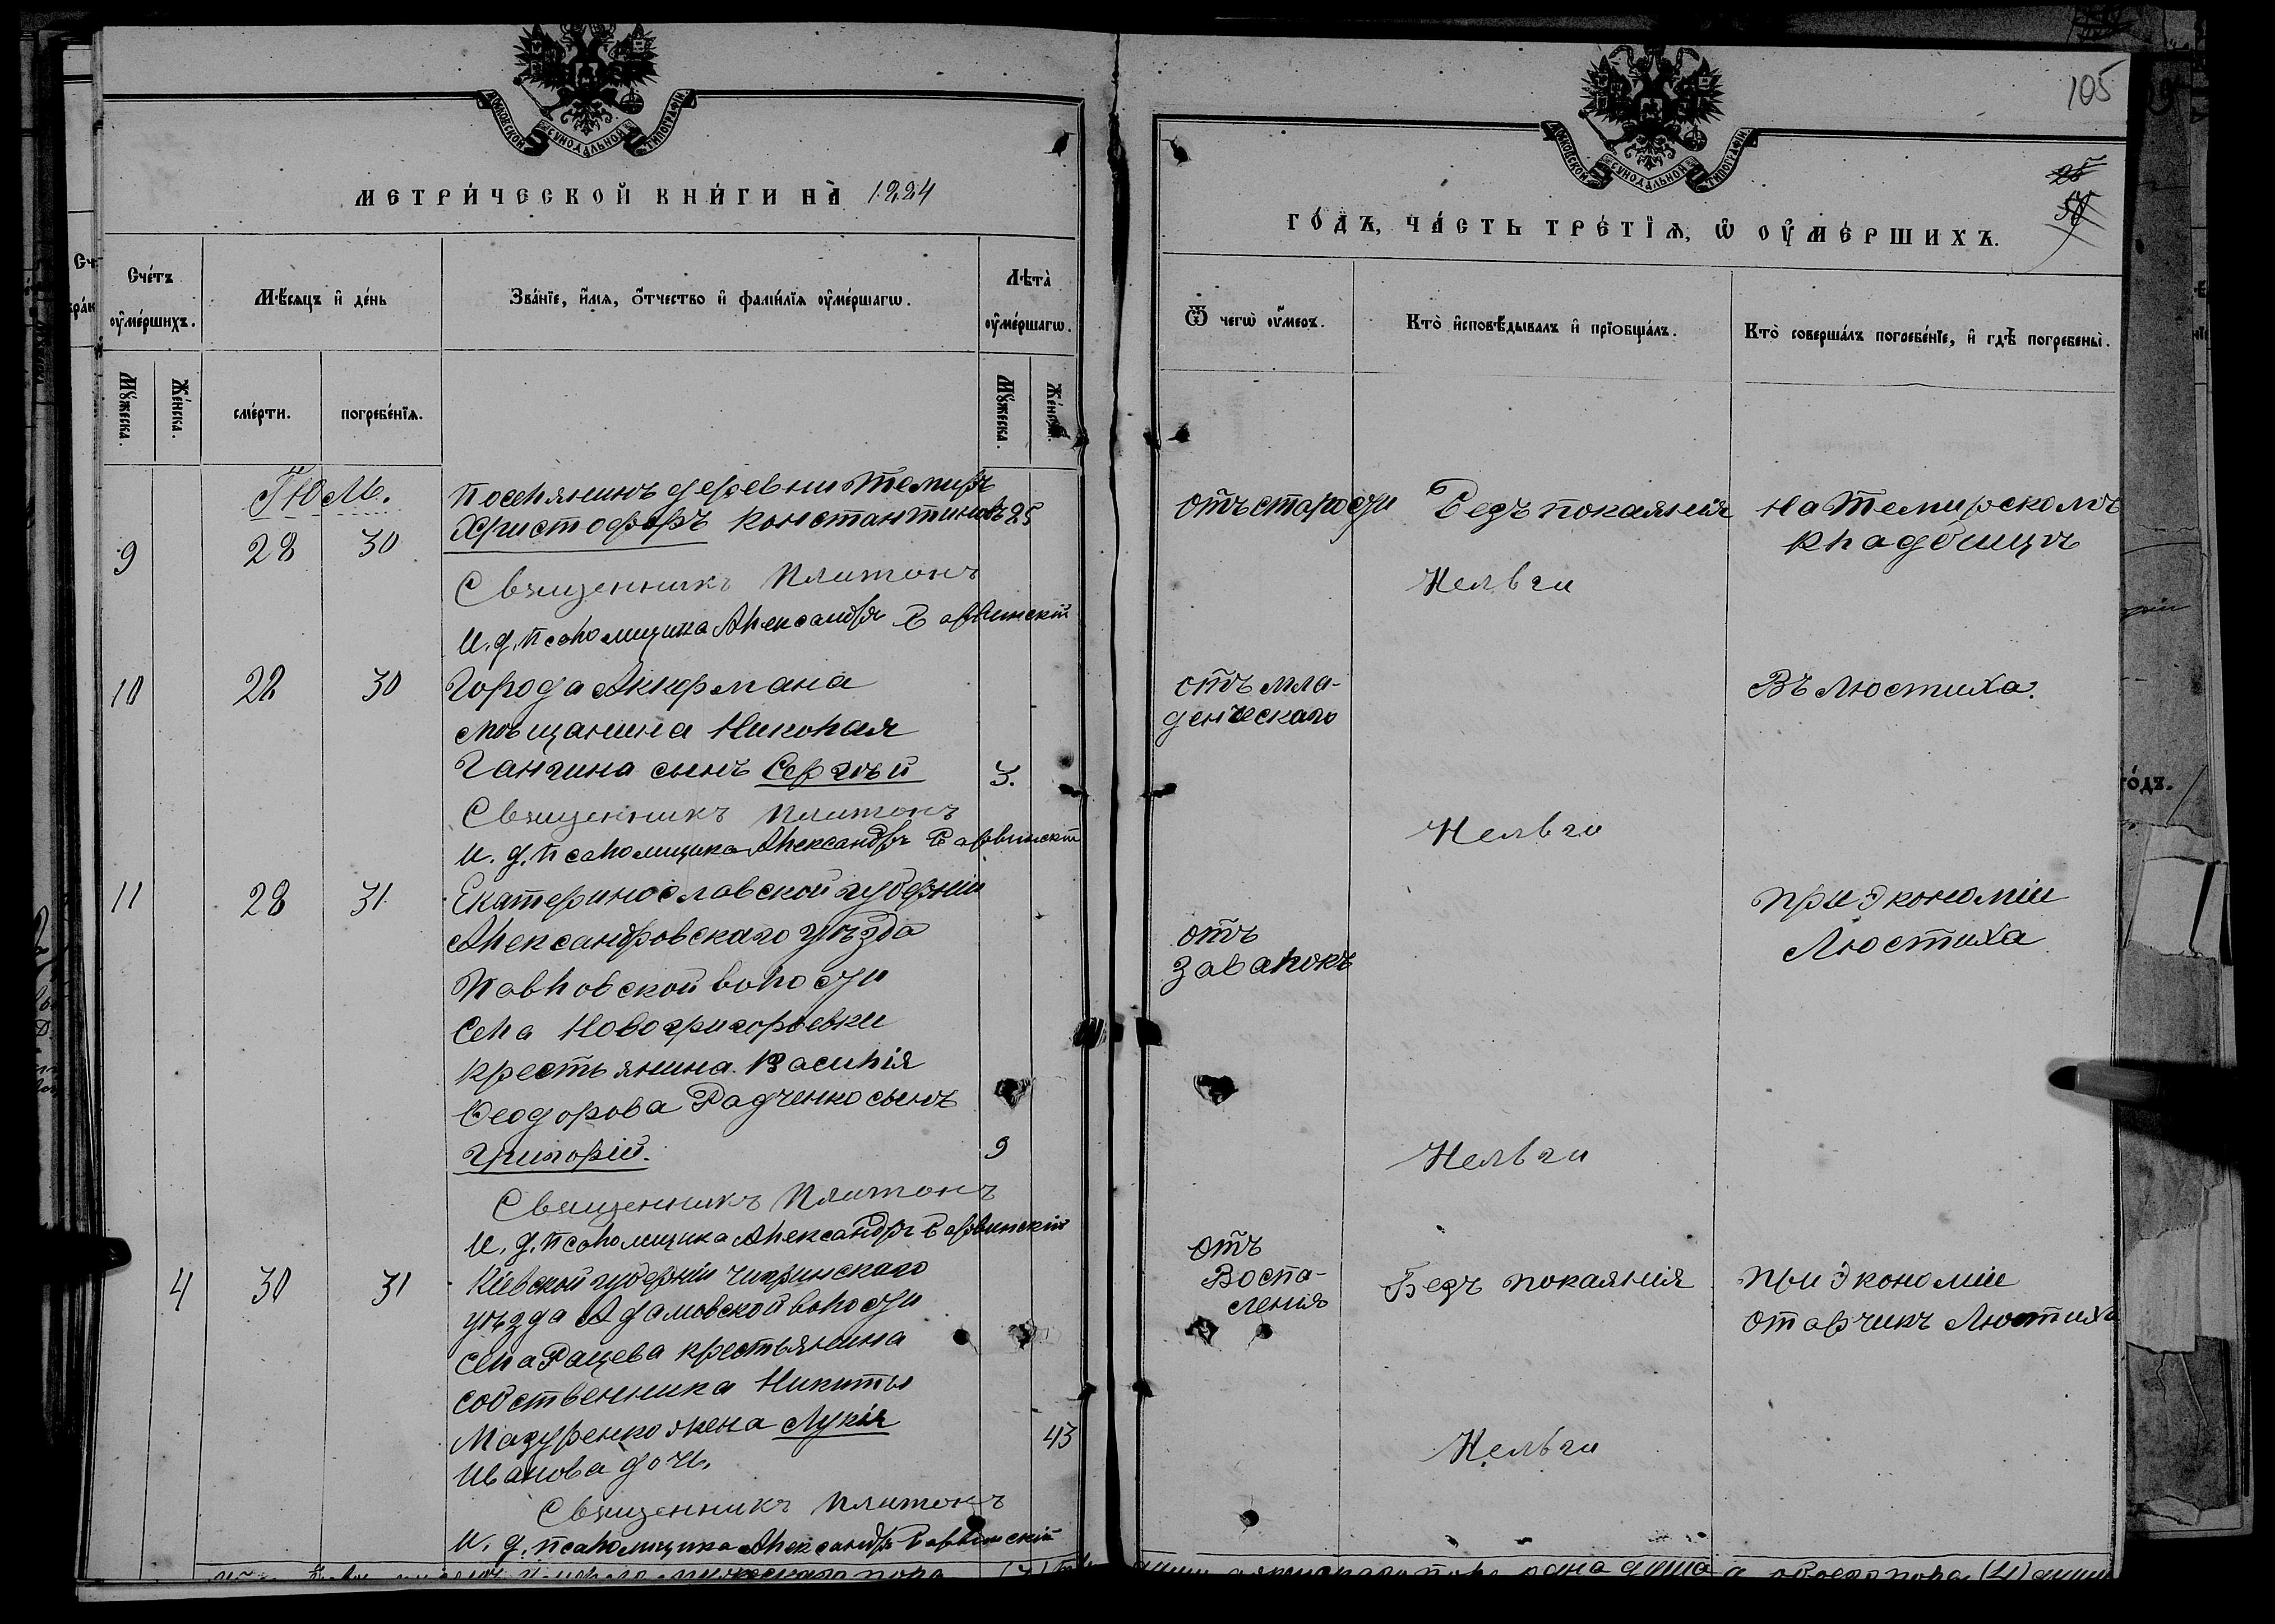 МОСКОВСКОЙ СѴНОДАЛЬНОЙ ТИПОГРАФІИ
МЕТРИ́ЧЕСКОЙ КНИ́ГИ НА̀ 1884
Сче́тъ ᲂу҆ме́ршихъ.
Мѣ́сяцъ и҆ де́нь
Зва́нїе, и҆́мѧ, ѻ҆́тчество и҆ фами́лїѧ ᲂу҆ме́ршагѡ.
Лѣта̀ ᲂу҆ме́ршагѡ.
Мꙋ́жеска.
Же́нска.
сме́рти.
погребе́нїѧ.
Мꙋ́жеска.
Же́нска.
Іюль.
Поселянинъ деревни Темиръ
9 28 30 Христофоръ Константиновъ 85
Священникъ Платонъ
И. д. псаломщика Александръ
10 22 30 Города Аккермана
мѣщанина Николая
Гангина сынъ Сергѣй 3.
Священникъ Платонъ
И. д. псаломщика Александръ
11 28 31 Екатеринославской губерніи
Александровскаго уѣзда
Павловской волости
села Новогригорьевки
крестьянина Василія
Ѳеодорова Радченко сынъ
Григорій. 9
Священникъ Платонъ
И. д. псаломщика Александръ
4 30 31 Кіевской губерніи Чигринскаго
уѣзда Адамовской волости
села Рацева крестьянина
собственника Никиты
Мазуренко жена Лукія 43
Иванова дочь.
Священникъ Платонъ
И. д. псаломщика Александръ
105
МОСКОВСКОЙ СѴНОДАЛЬНОЙ ТИПОГРАФІИ
ГО́ДЪ, ЧА́СТЬ ТРЕ́ТЇѦ, Ѡ҆ ОУ҆МЕ́РШИХЪ.
Ѿ чегѡ̀ ᲂу҆́меръ.
Кто̀ и҆сповѣ́дывалъ и҆ прїѡбща́лъ.
Кто̀ соверша́лъ погребе́нїе, и҆ гдѣ̀ погребены̀.
отъ старости
Безъ покаянія
на Темирскомъ
кладбищѣ
Нельги
отъ мла-
денческаго
Въ Люстиха.
Нельги
отъ
завалокъ
при экономіи
Люстиха
Нельги
отъ
Воспа-
ленія
Безъ покаянія
при экономіи
отарчикъ Люстиха
Нельги